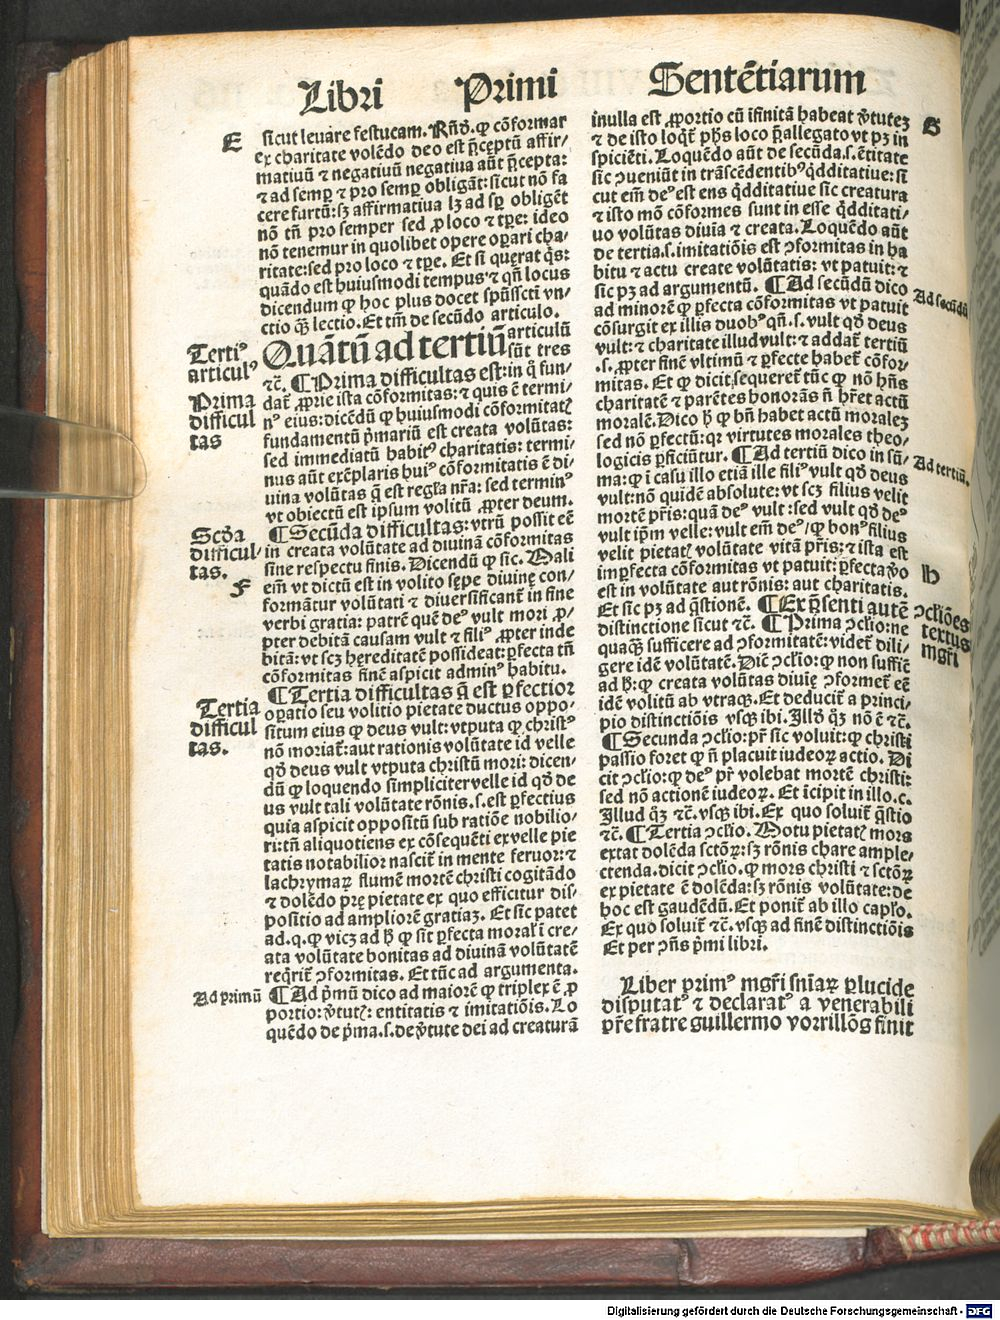 Libri Primi Sentētiarum
E
sicut leuare festucam. Rñd. ꝙ cōformar
ex charitate volēdo deo est p̄ceptū affir/
matiuū ⁊ negatiuū negatiua aūt p̄cepta:
⁊ ad semꝑ ⁊ pro semꝑ obligāt: sicut nō fa
cere furtū: sꝫ affirmatiua lꝫ ad sꝑ obligēt
nō tñ pro semper sed ꝓ loco ⁊ tꝑe: ideo
nō tenemur in quolibet opere oꝑari cha/
ritate: sed pro loco ⁊ tꝑe. Et si querat q̄s:
quādo est huiusmodi tempus ⁊ qñ locus
dicendum ꝙ hoc plus docet spūssctī vn/
ctio q̄ꝫ lectio. Et tm̄ de secūdo articulo.
Terti⁹
articul⁹
Quātū ad tertiū articulū
sūt tres
⁊c̄. ¶ Prima difficultas est: in q̄ fun/
Prima
difficul
tas
dat̄ ꝓprie ista cōformitas: ⁊ quis ē termi/
n⁹ eius: dicēdū ꝙ huiusmodi cōformitatꝭ
fundamentū p̄mariū est creata volūtas:
sed immediatū habit⁹ charitatis: termi/
nus aūt exēplaris hui⁹ cōformitatis ē di/
uina volūtas q̄ est regl̄a nr̄a: sed termin⁹
vt obiectū est ipsum volitū ꝓpter deum.
Scd̄a
difficul/
tas.
¶ Secūda difficultas: vtrū possit eē
in creata volūtate ad diuinā cōformitas
sine respectu finis. Dicendū ꝙ sic. Nali
F
em̄ vt dictū est in volito sępe diuinę con/
formātur volūtati ⁊ diuersificant̄ in fine
verbi gratia: patrē quē de⁹ vult mori ꝓ/
pter debitā causam vult ⁊ fili⁹ ꝓpter inde
bitā: vt scꝫ hęreditatē possideat: ꝑfecta tñ
cōformitas finē aspicit admin⁹ habitu.
Tertia
difficul
tas.
¶ Tertia difficultas q̄ est ꝑfectior
oꝑatio seu volitio pietate ductus oppo/
situm eius ꝙ deus vult: vtputa ꝙ christ⁹
nō moriat̄: aut rationis volūtate id velle
qd̄ deus vult vtputa christū mori: dicen/
dū ꝙ loquendo simpliciter velle id qd̄ de
us vult tali volūtate rōnis. s. est ꝑfectius
quia aspicit oppositū sub ratiōe nobilio/
ri: tñ aliquotiens ex cōsequēti ex velle pie
tatis notabilior nascit̄ in mente feruor: ⁊
lachrymaꝝ flumē mortē christi cogitādo
⁊ dolēdo prę pietate ex quo efficitur dis/
positio ad ampliorē gratiaꝫ. Et sic patet
ad. q. ꝙ vicꝫ ad ħ ꝙ sit ꝑfecta moral̄ i cre/
ata voluntate bonitas ad diuinā volūtatē
req̄rit̄ ↄformitas. Et tūc ad argumenta.
Ad primū
¶ Ad p̄mū dico ad maiorē ꝙ triplex ē ꝓ
portio: v̄tutꝭ: entitatis ⁊ imitatiōis. Lo
quēdo de p̄ma. s. de v̄tute dei ad creaturā
inulla est ꝓportio cū īfinitā habeat v̄tuteꝫ
G
⁊ de isto loqt̄ ph̄s loco p̄allegato vt pꝫ in
spiciēti. Loquēdo aūt de secūda. s. ētitate
sic ↄueniūt in trāscēdentib⁹ qd̄ditatiue: si
cut em̄ de⁹ est ens qd̄ditatiue sic creatura
⁊ isto mō cōformes sunt in esse qd̄ditati/
uo volūtas diuīa ⁊ creata. Loquēdo aūt
de tertia. s. imitatiōis est ↄformitas in ha
bitu ⁊ actu create volūtatis: vt patuit: ⁊
sic pꝫ ad argumentū. ¶ Ad secūdū dico
Ad secūdū
ad minorē ꝙ ꝑfecta cōformitas vt patuit
cōsurgit ex illis duob⁹ qñ. s. vult qd̄ deus
vult: ⁊ charitate illud vult: ⁊ addat̄ tertiū
. s. ꝓpter finē vltimū ⁊ ꝑfecte habet̄ cōfor/
mitas. Et ꝙ dicit, sequeret̄ tūc ꝙ nō hñs
charitatē ⁊ parētes honorās ñ hr̄et actū
moralē. Dico ħ ꝙ bñ habet actū moraleꝫ
sed nō ꝑfectū: qꝛ virtutes morales theo/
logicis ꝑficiūtur. ¶ Ad tertiū dico in sū/
Ad tertiū.
ma: ꝙ ī casu illo etiā ille fili⁹ vult qd̄ deus
vult: nō quidē absolute: vt scꝫ filius velit
mortē pr̄is: quā de⁹ vult: sed vult qd̄ de⁹
vult ip̄m velle: vult em̄ de⁹/ ꝙ bon⁹ filius
velit pietatꝭ volūtate vitā pr̄is: ⁊ ista est
H
imꝑfecta cōformitas vt patuit: ꝑfecta v̄o
est in volūtate aut rōnis: aut charitatis.
Et sic pꝫ ad q̄stionē. ¶ Ex p̄senti autē
ↄcl̄iōes
textus
mgr̄i
distinctione sicut ⁊c̄. ¶ Prima ↄcl̄io: ne
quaq̄ꝫ sufficere ad ↄformitatē: videt̄ dili/
gere idē volūtatē. Diē ↄcl̄io: ꝙ non suffiē
ad ħ: ꝙ creata volūtas diuię ↄformet̄ eē
idē volitū ab vtraqꝫ. Et deducit̄ a princi/
pio distinctiōis vsqꝫ ibi. Illd̄ q̄ꝫ nō ē ⁊c̄.
¶ Secunda ↄcl̄io: pr̄ sic voluit: ꝙ christi
passio foret ꝙ ñ placuit iudeoꝝ actio. Di
cit ↄcl̄io: ꝙ de⁹ pr̄ volebat mortē christi:
sed nō actionē iudeoꝝ. Et īcipit in illo. c.
Illud q̄ꝫ ⁊c̄. vsqꝫ ibi. Ex quo soluit̄ q̄stio
⁊c̄. ¶ Tertia ↄcl̄io. Motu pietatꝭ mors
extat dolēda sctōꝝ: sꝫ rōnis chareample/
ctenda. dicit ↄcl̄io. ꝙ mors christi ⁊ sctōꝝ
ex pietate ē dolēda: sꝫ rōnis volūtate: de
hoc est gaudēdū. Et ponit̄ ab illo capl̄o.
Ex quo soluit̄ ⁊c̄. vsqꝫ ad finē distinctiōis
Et per ↄñs p̄mi libri.
Liber prim⁹ mgr̄i sn̄iaꝝ ꝑlucide
disputat⁹ ⁊ declarat⁹ a venerabili
pr̄e fratre guillermo vorrillōg finit
Digitalisierung gefördert durch die Deutsche Forschungsgemeinschaft - DFG